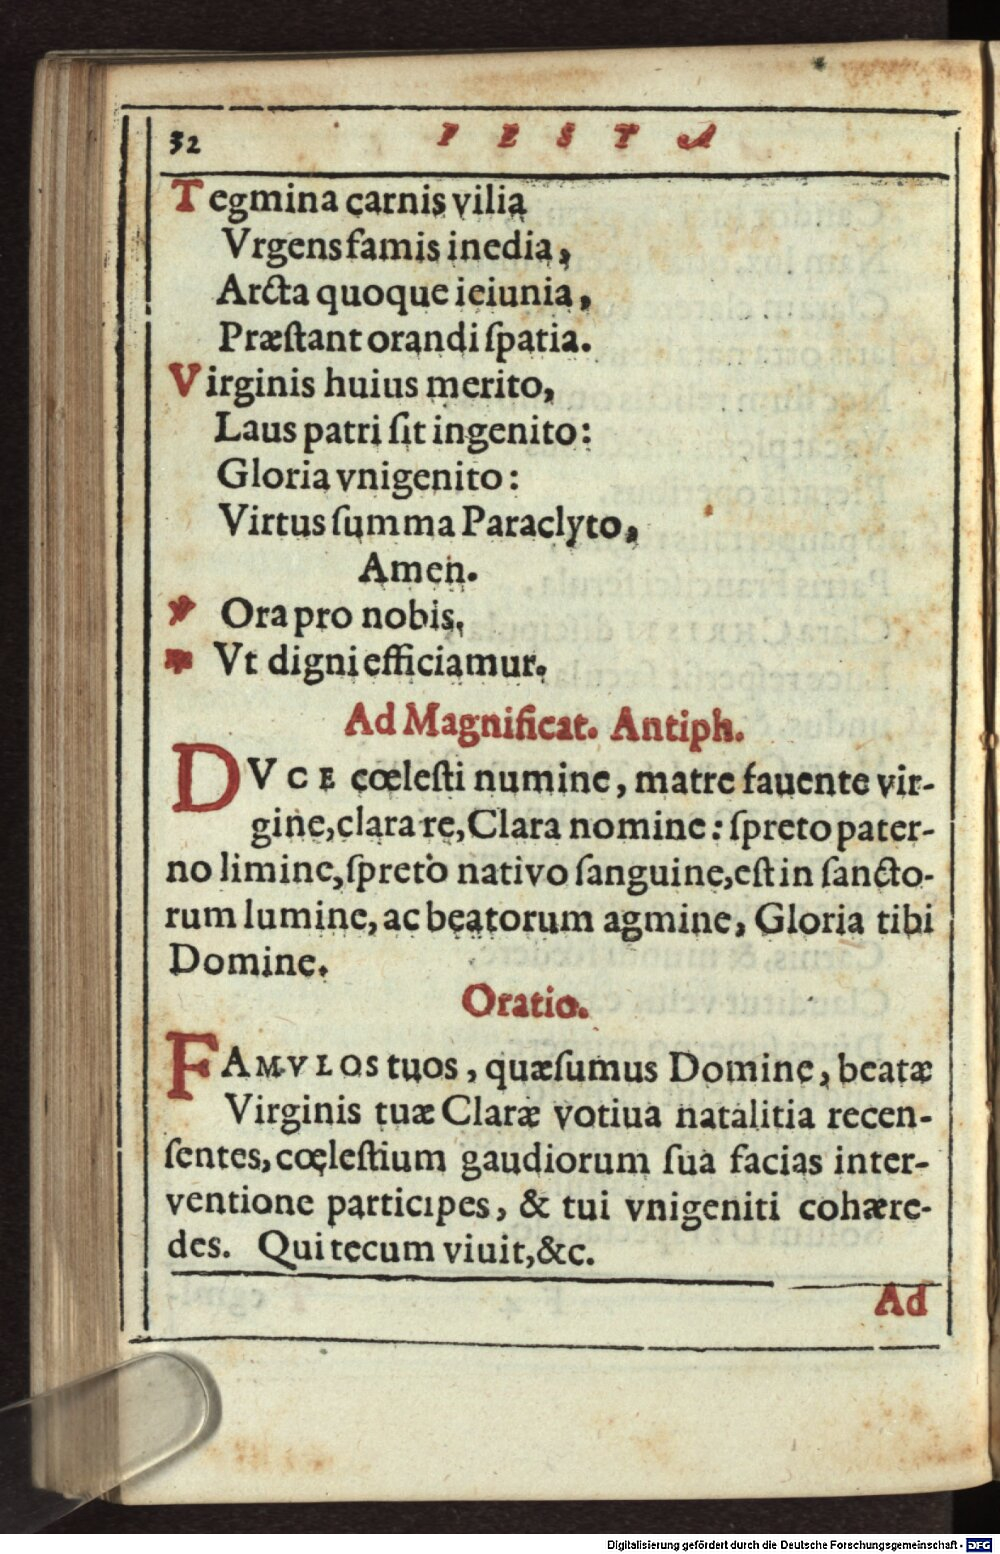 32 FESTA
Tegmina carnis vilia
Vrgens famis inedia,
Arcta quoque ieiunia,
Præſtant orandi ſpatia.
Virginis huius merito,
Laus patri ſit ingenito:
Gloria vnigenito:
Virtus ſumma Paraclyto,
Amen.
℣ Ora pro nobis.
℟ Vt digni efficiamur.
Ad Magnificat. Antiph.
DVCE cœleſti numine, matre fauente vir-
gine, clara re, Clara nomine: ſpreto pater-
no limine, ſpretò nativo ſanguine, eſt in ſancto-
rum lumine, ac beatorum agmine, Gloria tibi
Domine.
Oratio.
FAMVLOS tuos, quæſumus Domine, beatæ
Virginis tuæ Claræ votiua natalitia recen-
ſentes, cœleſtium gaudiorum ſua facias inter-
ventione participes, & tui vnigeniti cohære-
des. Qui tecum viuit, &c.
Ad
Digitalisierung gefördert durch die Deutsche Forschungsgemeinschaft - DFG